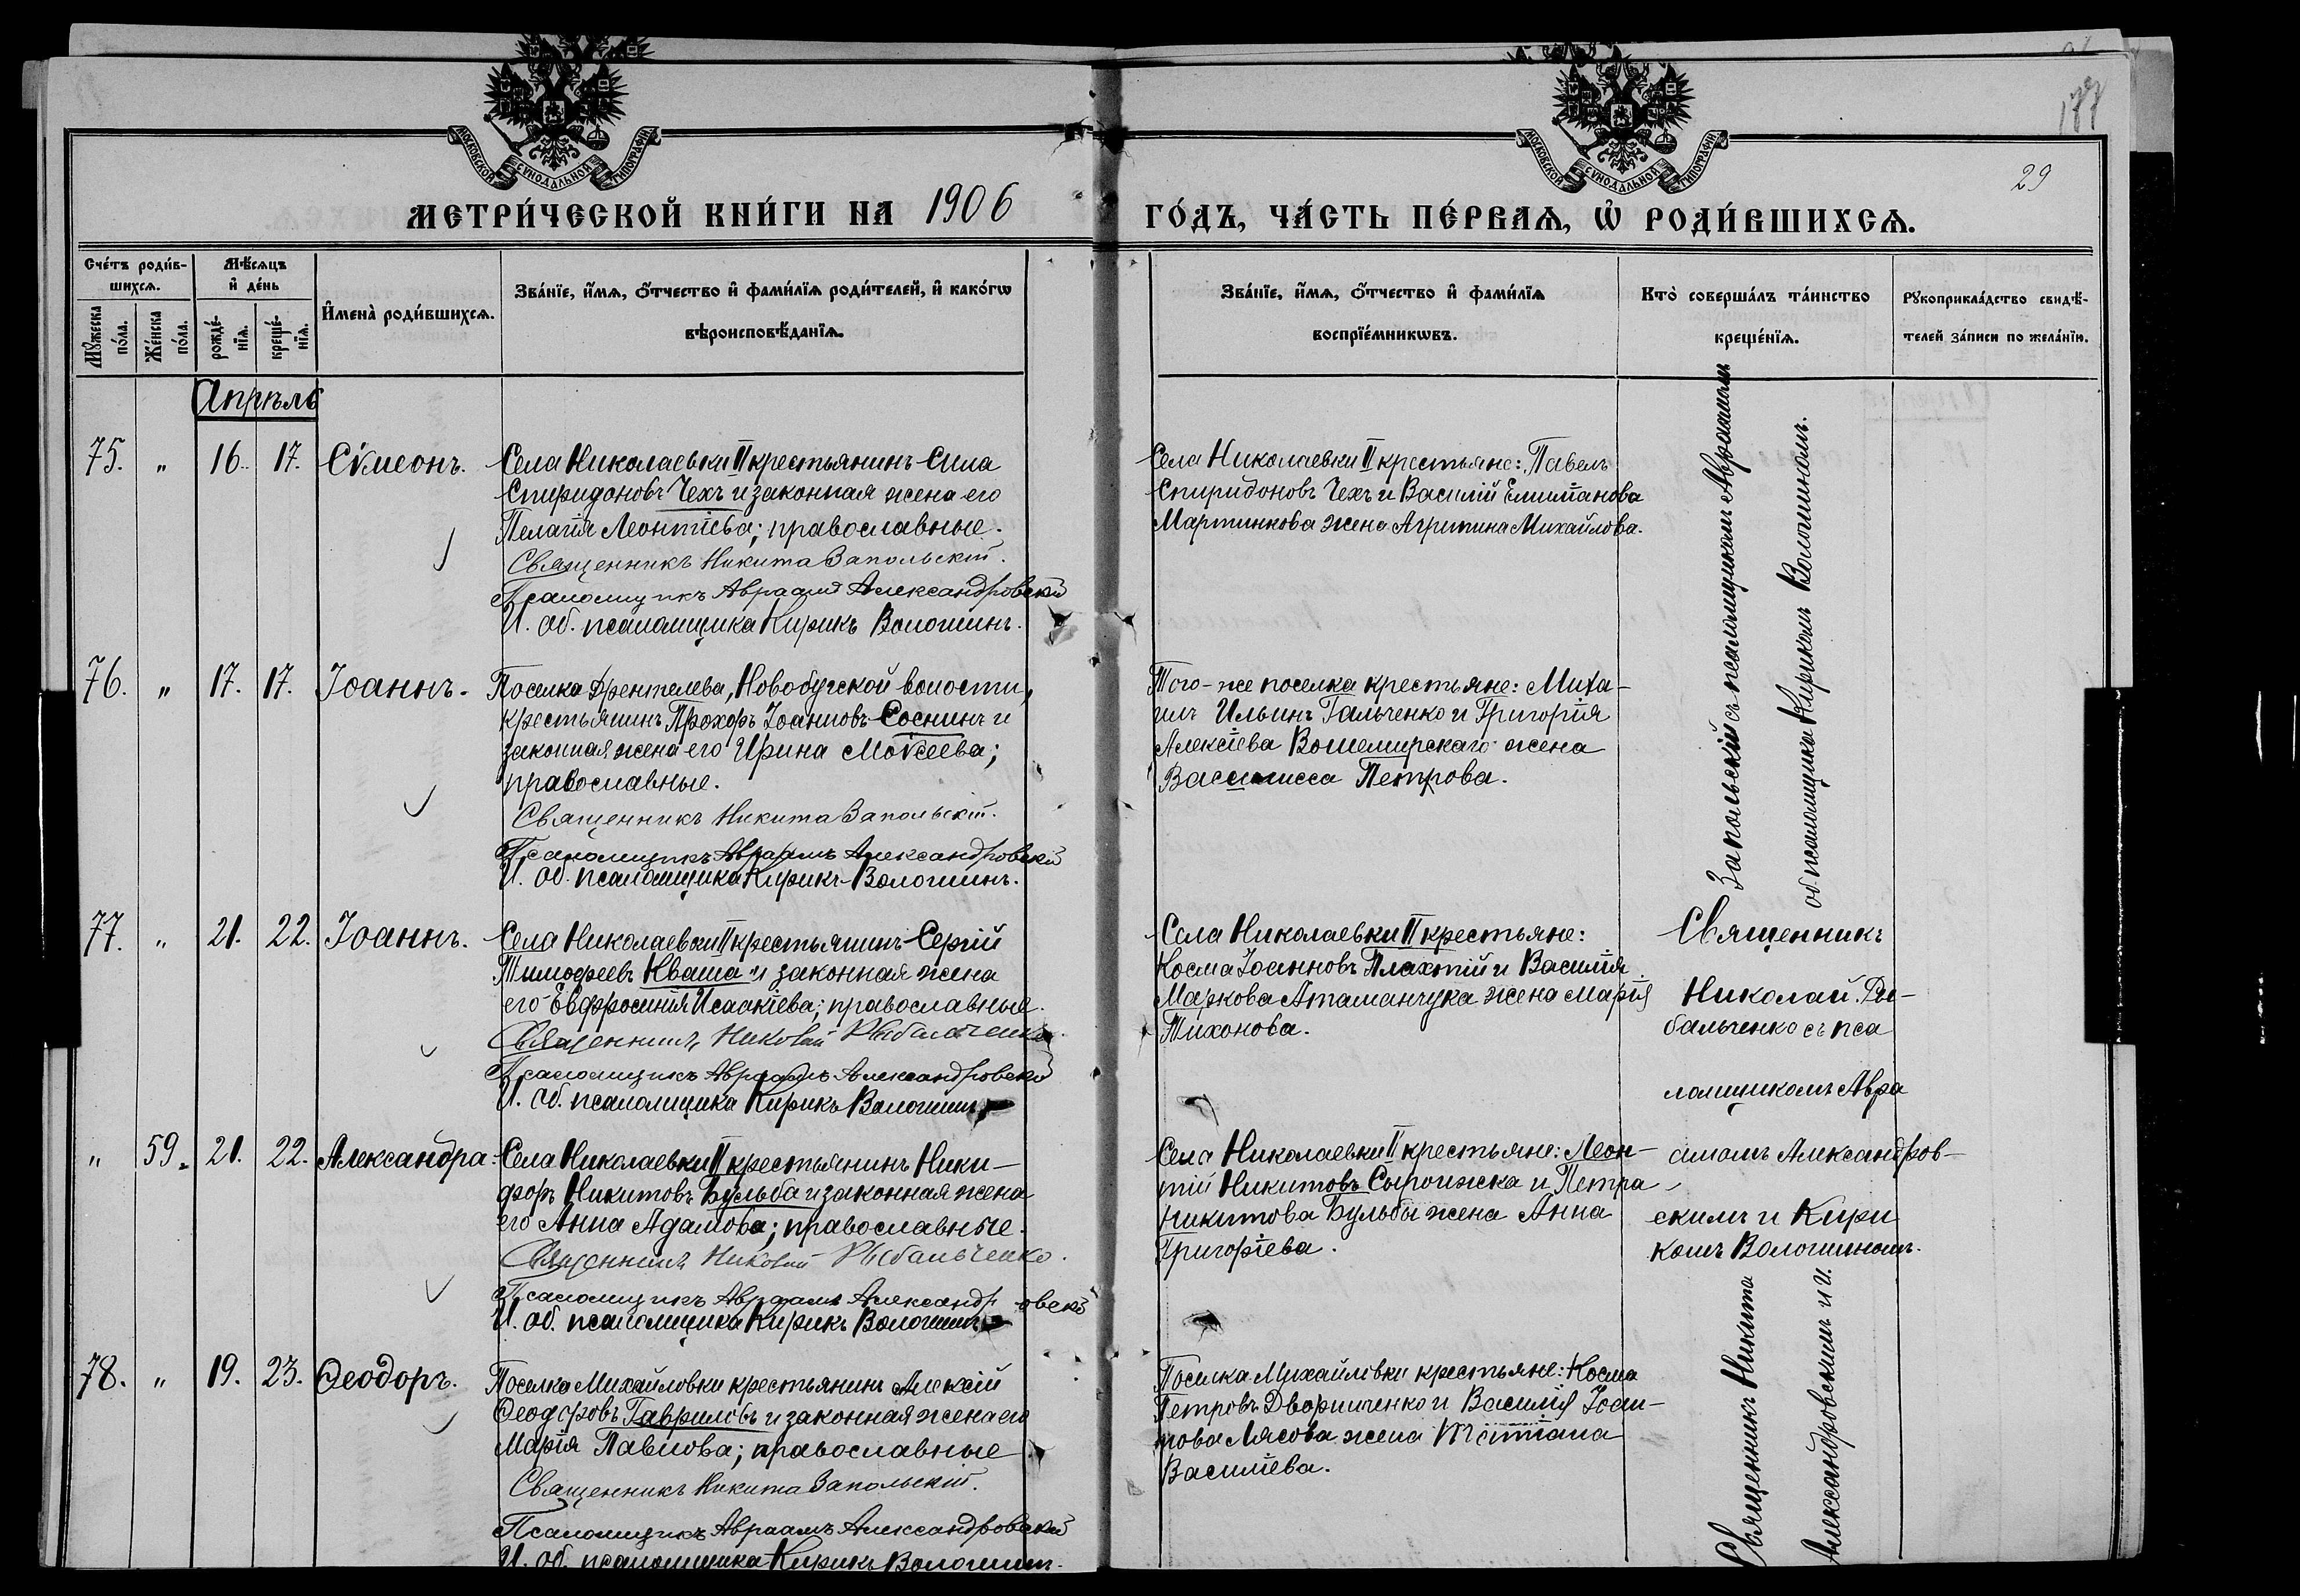 МОСКОВСКОЙ СУНОДАЛЬНОЙ ТИПОГРАФІИ
МОСКОВСКОЙ СУНОДАЛЬНОЙ ТИПОГРАФІИ
177
29
МЕТРИ́ЧЕСКОЙ КНИ́ГИ НА 1906 ГО́ДЪ, ЧА́СТЬ ПЕ́РВАѦ, Ѡ҆ РОДИ́ВШИХСѦ.
Сче́тъ роди́в-
шихсѧ.
Мѣ́сѧцъ
и҆ де́нь
И҆мена̀ роди́вшихсѧ.
Зва́нїе, и҆́мѧ, ѻ҆́тчество и҆ фами́лїѧ роди́телей, и҆ како́гѡ
вѣроисповѣ́данїѧ.
Зва́нїе, и҆́мѧ, ѻ҆́тчество и҆ фами́лїѧ
воспрїе́мникѡвъ.
Кто̀ соверша́лъ та́инство
креще́нїѧ.
Рꙋкоприкла́дство свидѣ́-
телей за́писи по жела́нїю.
Мꙋ́жеска
по́ла.
Же́нска
по́ла.
рожде́-
нїѧ.
креще́-
нїѧ.
Апрѣль
75. " 16. 17. Сѵмеонъ.
Села Николаевки II крестьянинъ Сила
Спиридоновъ Чехъ и законная жена его
Пелагія Леонтіева; православные.
Священникъ Никита Запольскій.
Псаломщикъ Авраамъ Александровскій
И. об. псаломщика Кирикъ Волошинъ.
Села Николаевки II крестьяне: Павелъ
Спиридоновъ Чехъ и Василій Епипанова
Мартинкова жена Агрипина Михайлова.
76. " 17. 17. Іоаннъ.
Поселка Френтелева, Новобугской волости,
крестьянинъ Прохоръ Іоанновъ Соснинъ и
законная жена его Ирина Моѵсеева;
православные.
Священникъ Никита Запольскій.
Псаломщикъ Авраамъ Александровскій
И. об. псаломщика Кирикъ Волошинъ.
Того-же поселка крестьяне: Миха-
илъ Ильинъ Гальченко и Григорія
Алексіева Вошемирскаго жена
Василисса Петрова.
Запольскій съ псаломщикомъ Авраамомъ
об псаломщика Кирикомъ Волошиномъ.
77. " 21. 22. Іоаннъ.
Села Николаевки II крестьянинъ Сергій
Тимофеевъ Кваша и законная жена
его Евфросинія Исаакіева; православные.
Священникъ Николай Рыбальченко.
Псаломщикъ Авраамъ Александровскій
И. об. псаломщика Кирикъ Волошинъ
Села Николаевки II крестьяне:
Косма Іоанновъ Плахтій и Василія
Маркова Атаманчука жена Марія
Тихонова.
Священникъ
Николай Ры-
бальченко съ пса
ломщикомъ Авра
амомъ Александров-
скимъ и Кири
комъ Волошиномъ.
" 59. 21. 22. Александра.
Села Николаевки II крестьянинъ Ники-
форъ Никитовъ Бульба и законная жена
его Анна Адамова; православные.
Священникъ Николай Рыбальченко.
Псаломщикъ Авраамъ Александровскій
И. об. псаломщика Кирикъ Волошинъ
Села Николаевки II крестьяне: Леон-
тій Никитовъ Сыроижска и Петра
Никитова Бульбы жена Анна
Григоріева.
78. " 19. 23. Ѳеодоръ.
Поселка Михайловки крестьянинъ Алексій
Ѳеодоровъ Гавриловъ и законная жена его
Марія Павлова; православные
Священникъ Никита Запольскій.
Псаломщикъ Авраамъ Александровскій
И. об. псаломщика Кирикъ Волошинъ.
Поселка Михайловки крестьяне: Косма
Петровъ Дворниченко и Василія Іоан-
нова Лясова жена Татіана
Василіева.
Священникъ Никита
Александровскимъ и И.